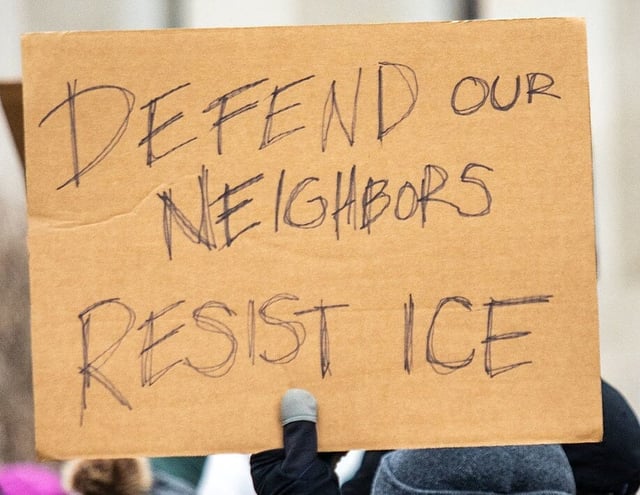 DEFEND OUR
NEIGHBORS
RESIST ICE